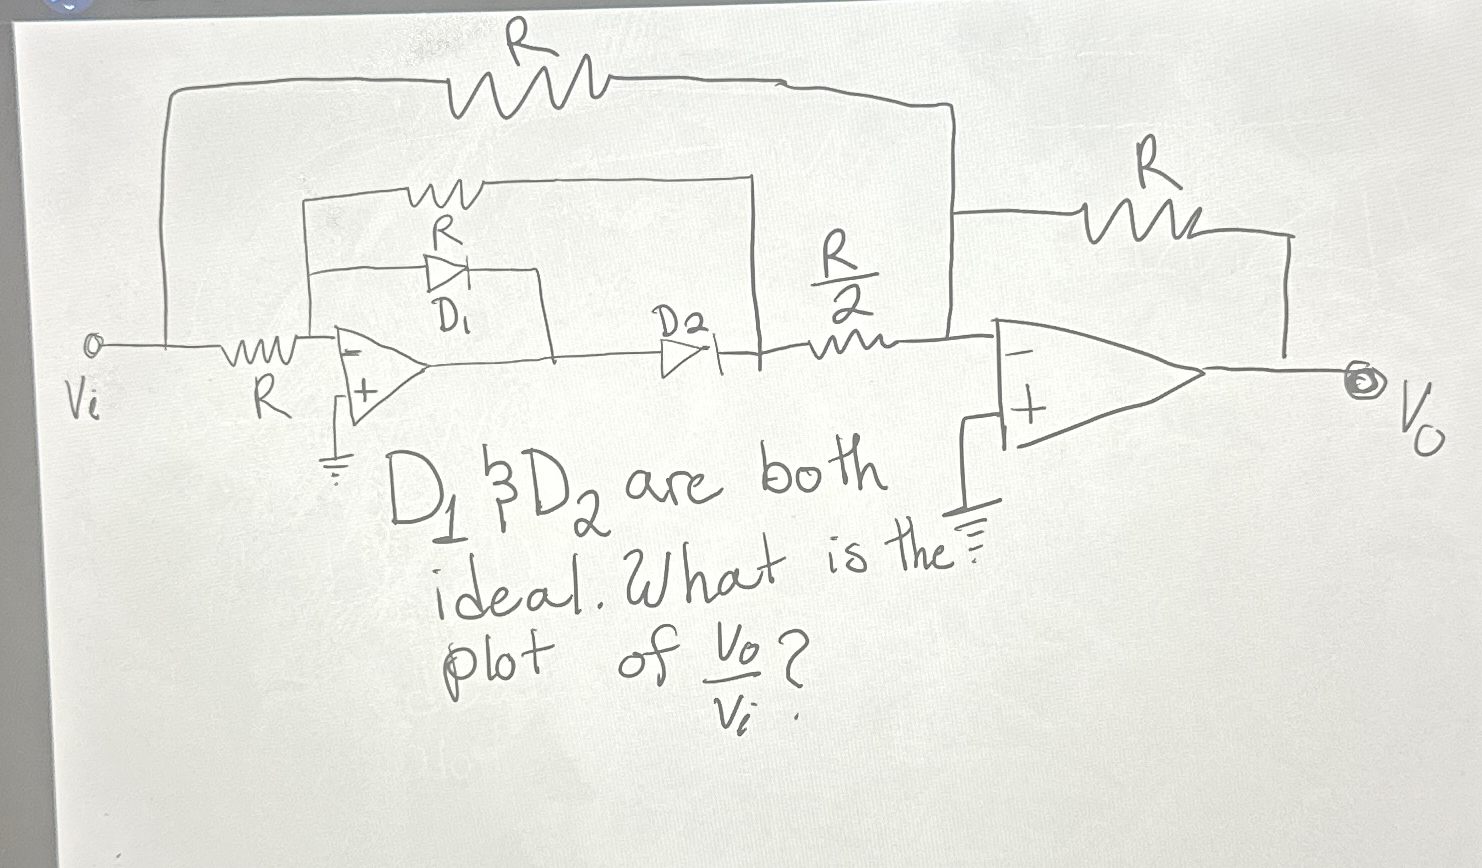 R
R
R
R
D1
D2
R
2
-
+
-
+
Vi
R
Vo
D1 & D2 are both
ideal. What is the
plot of Vo/Vi?